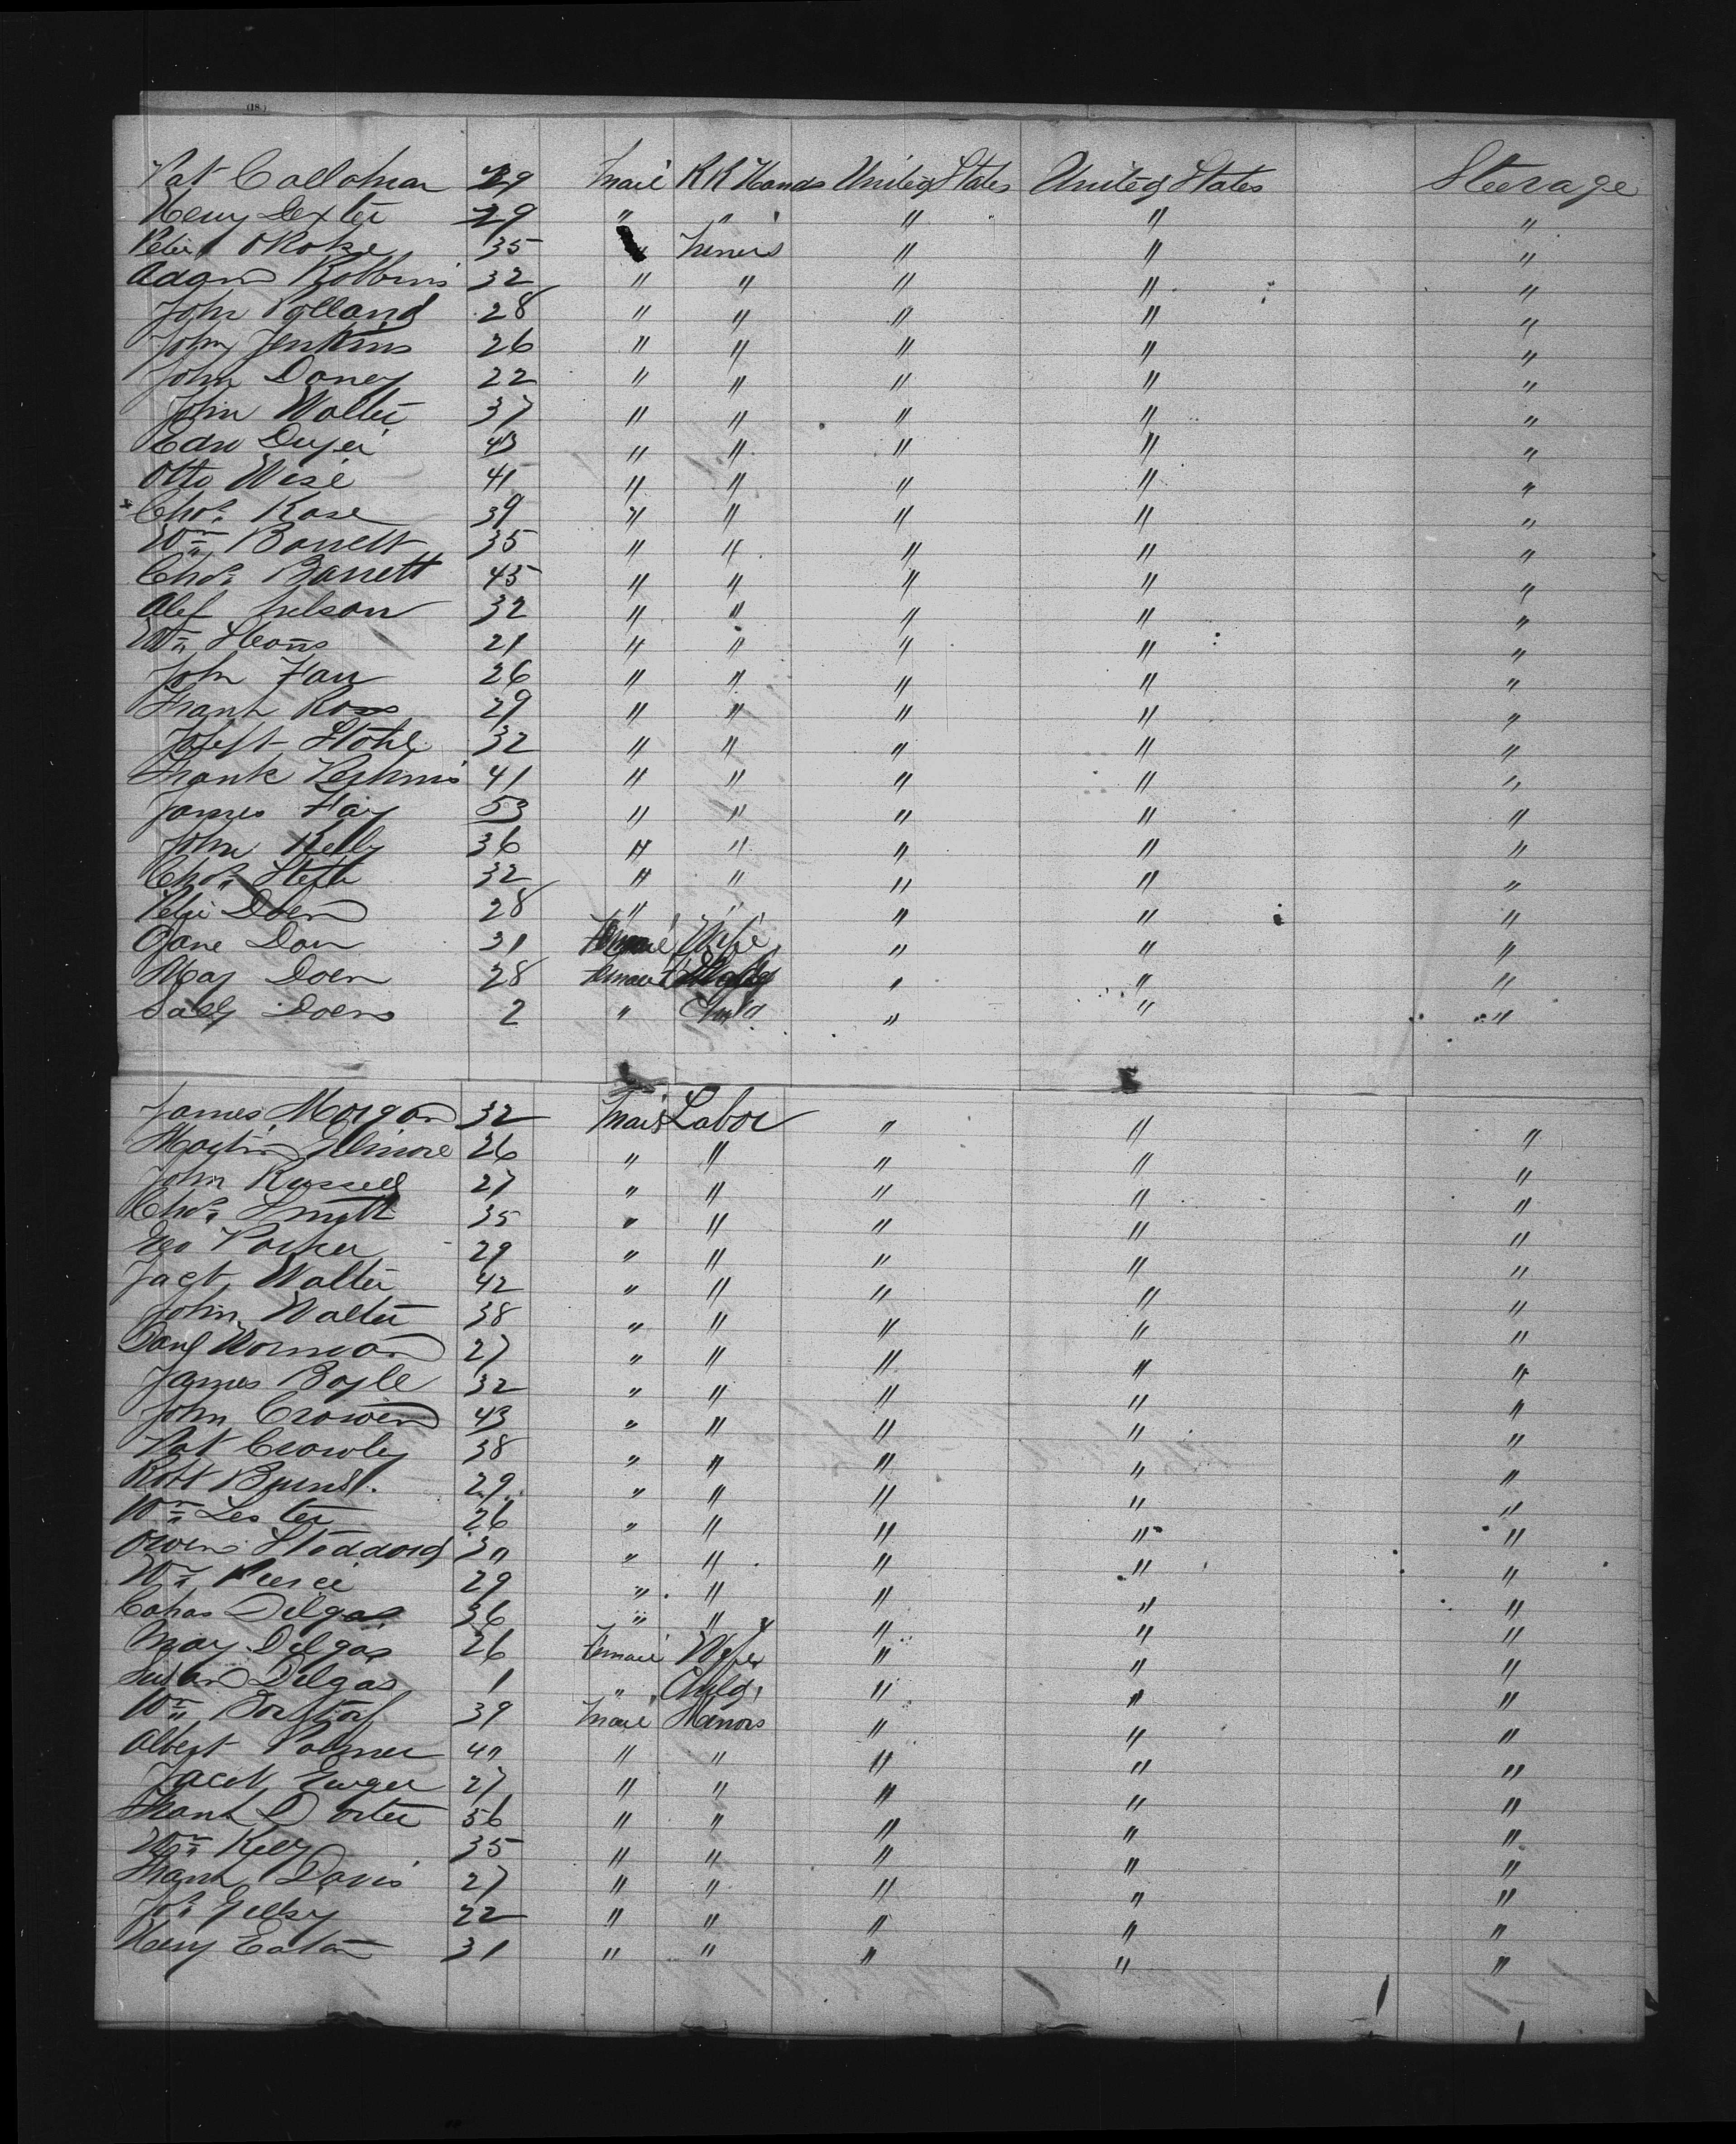 (18)
Pat Callahan 29 Male RR Hands United States United States Steerage
Henry Dexter 29 " " " " "
Peter O Roke 35 " Miners " " "
Adam Robbins 32 " " " " "
John Polland 28 " " " " "
John Jenkins 26 " " " " "
John Doney 22 " " " " "
John Walter 37 " " " " "
Edw Dwyer 43 " " " " "
Otto Wise 41 " " " " "
Chas. Rose 39 " " " " "
Wm Barrett 35 " " " " "
Chas. Barrett 45 " " " " "
Alex Nelson 32 " " " " "
Wm 21 " " " " "
John Farr 26 " " " " "
Frank Ross 29 " " " " "
Stohl 32 " " " " "
Frank Perkins 41 " " " " "
James Fay 53 " " " " "
John Kelly 36 " " " " "
Chas. 32 " " " " "
Peter Doen 28 " " " " "
Jane Doen 31 Female Wife " " "
May Doen 28 Female " " "
Sally Doen 2 " Child " " "
James Morgan 32 Male Labor " " "
Martin Elmore 26 " " " " "
John Russell 27 " " " " "
Chas. Smyth 35 " " " " "
Geo Parker 29 " " " " "
Jacb Walter 42 " " " " "
John Walter 38 " " " " "
Danl Worman 27 " " " " "
James Boyle 32 " " " " "
John Crowen 43 " " " " "
Pat Crowley 38 " " " " "
Robt Burns 29 " " " " "
Wm Lester 26 " " " " "
Owen Stoddard 30 " " " " "
Wm Pierce 29 " " " " "
Dilgas 36 " " " " "
May Dilgas 26 Female Wife " " "
Susan Dilgas 1 " Child " " "
Wm 39 Male " " "
Albert Palmer 40 " " " " "
Jacob 27 " " " " "
Frank Dorter 56 " " " " "
Wm Kelly 35 " " " " "
Frank Davis 27 " " " " "
Jos. 22 " " " " "
Henry Eaton 31 " " " " "